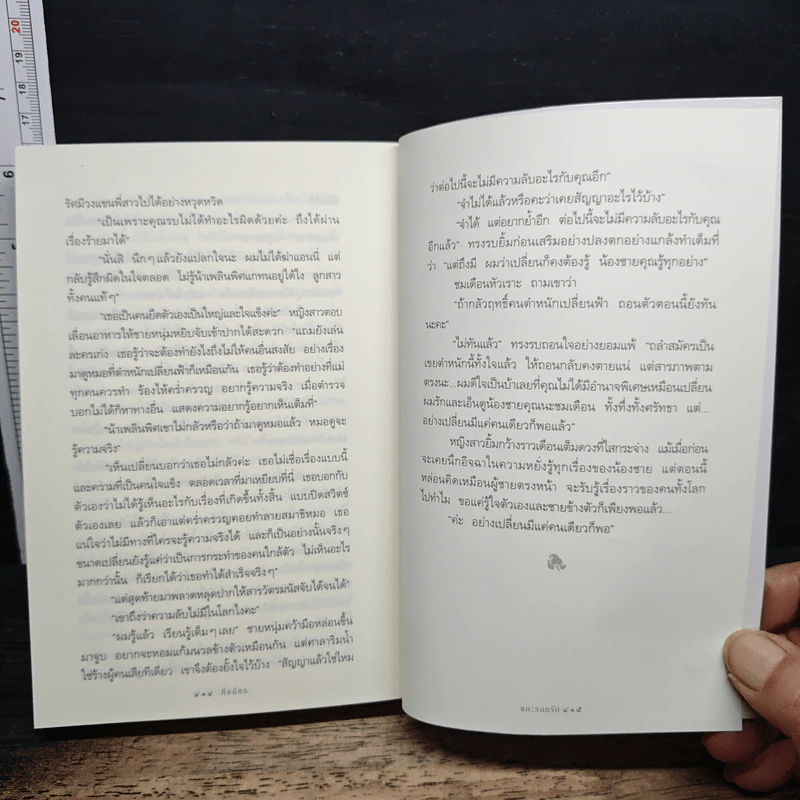 รัศมิวงแขนพี่สาวไปได้อย่างหวุดหวิด
"เป็นเพราะคุณรบไม่ได้ทำอะไรผิดด้วยค่ะ ถึงได้ผ่าน
เรื่องร้ายมาได้"
"นั่นสิ นึกๆ แล้วยังแปลกใจนะ ผมไม่ได้ฆ่าแอนนี่ แต่
กลับรู้สึกผิดในใจตลอด ไม่รู้น้าเพลินพิศแกทนอยู่ได้ไง ลูกสาว
ทั้งคนแท้ๆ"
"เธอเป็นคนยึดตัวเองเป็นใหญ่และใจแข็งค่ะ" หญิงสาวตอบ
เลื่อนอาหารให้ชายหนุ่มหยิบจับเข้าปากได้สะดวก "แถมยังเล่น
ละครเก่ง เธอรู้ว่าจะต้องทำยังไงถึงไม่ให้คนอื่นสงสัย อย่างเรื่อง
มาดูหมอที่ตำหนักเปลี่ยนฟ้าก็เหมือนกัน เธอรู้ว่าต้องทำอย่างที่แม่
ทุกคนควรทำ ร้องไห้คร่ำครวญ อยากรู้ความจริง เมื่อตำรวจ
บอกไม่ได้ก็หาทางอื่น แสดงความอยากรู้อยากเห็นเต็มที่"
"น้าเพลินพิศเขาไม่กลัวหรือว่าถ้ามาดูหมอแล้ว หมอดูจะ
รู้ความจริง"
"เห็นเปลี่ยนบอกว่าเธอไม่กลัวค่ะ เธอไม่เชื่อเรื่องแบบนี้
และความที่เป็นคนใจแข็ง ตลอดเวลาที่มาเหยียบที่นี่ เธอบอกกับ
ตัวเองว่าไม่ได้รู้เห็นอะไรกับเรื่องที่เกิดขึ้นทั้งสิ้น แบบปิดสวิตช์
ตัวเองเลย แล้วก็เอาแต่คร่ำครวญคอยทำลายสมาธิหมอ เธอ
แน่ใจว่าไม่มีทางที่ใครจะรู้ความจริงได้ และก็เป็นอย่างนั้นจริงๆ
ขนาดเปลี่ยนยังรู้แค่ว่าเป็นการกระทำของคนใกล้ตัว ไม่เห็นอะไร
มากกว่านั้น ก็เรียกได้ว่าเธอทำได้สำเร็จจริงๆ"
"แต่สุดท้ายมาพลาดหลุดปากให้สารวัตรมนัสจับได้จนได้"
"เขาถึงว่าความลับไม่มีในโลกไงคะ"
"ผมรู้แล้ว เรียนรู้เต็มๆ เลย" ชายหนุ่มคว้ามือหล่อนขึ้น
มาจูบ อยากจะหอมแก้มนวลข้างตัวเหมือนกัน แต่ศาลาริมน้ำ
ใช่ร้างผู้คนเสียทีเดียว เขาจึงต้องยั้งใจไว้บ้าง "สัญญาแล้วใช่ไหม
๔๑๔ กิ่งฉัตร
ว่าต่อไปนี้จะไม่มีความลับอะไรกับคุณอีก"
"จำไม่ได้แล้วหรือคะว่าเคยสัญญาอะไรไว้บ้าง"
"จำได้ แต่อยากย้ำอีก ต่อไปนี้จะไม่มีความลับอะไรกับคุณ
อีกแล้ว" ทรงรบยิ้มก่อนเสริมอย่างปลงตกอย่างแกล้งทำเต็มที่
ว่า "แต่ถึงมี ผมว่าเปลี่ยนก็คงต้องรู้ น้องชายคุณรู้ทุกอย่าง"
ชมเดือนหัวเราะ ถามเขาว่า
"ถ้ากลัวฤทธิ์คนตำหนักเปลี่ยนฟ้า ถอนตัวตอนนี้ยังทัน
นะคะ"
"ไม่ทันแล้ว" ทรงรบถอนใจอย่างยอมแพ้ "ถลำสมัครเป็น
เขยตำหนักนี้ทั้งใจแล้ว ให้ถอนกลับคงตายแน่ แต่สารภาพตาม
ตรงนะ...ผมดีใจเป็นบ้าเลยที่คุณไม่ได้มีอำนาจพิเศษเหมือนเปลี่ยน
ผมรักและเอ็นดูน้องชายคุณนะชมเดือน ทั้งทึ่งทั้งศรัทธา แต่...
อย่างเปลี่ยนมีแค่คนเดียวก็พอแล้ว"
หญิงสาวยิ้มกว้างราวเดือนเต็มดวงที่ใสกระจ่าง แม้เมื่อก่อน
จะเคยนึกอิจฉาในความหยั่งรู้ทุกเรื่องของน้องชาย แต่ตอนนี้
หล่อนคิดเหมือนผู้ชายตรงหน้า จะรับรู้เรื่องราวของคนทั้งโลก
ไปทำไม ขอแค่รู้ใจตัวเองและชายข้างตัวก็เพียงพอแล้ว...
"ค่ะ อย่างเปลี่ยนมีแค่คนเดียวก็พอ"
แกะรอยรัก ๔๑๕